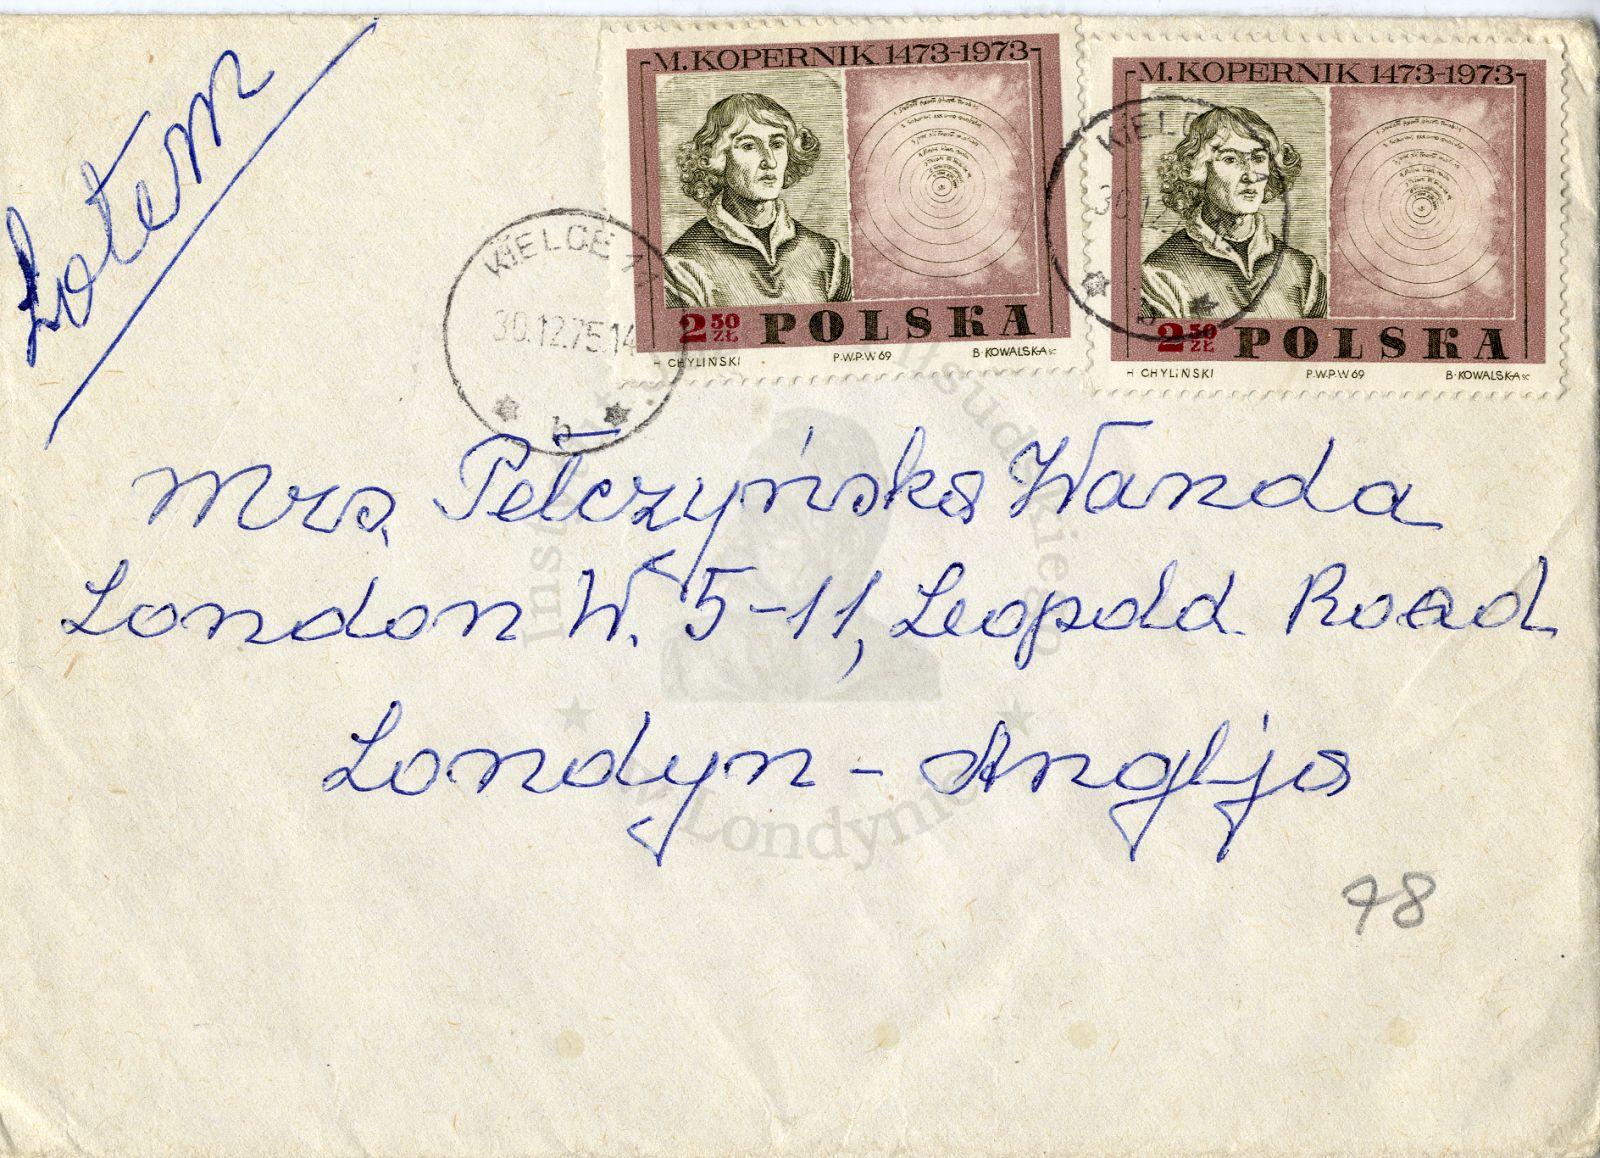 Lotem
M. KOPERNIK 1473-1973
2 50 ZŁ POLSKA
H CHYLIŃSKI P.W.P.W 69 B. KOWALSKA SC
M. KOPERNIK 1473-1973
2 50 ZŁ POLSKA
H CHYLIŃSKI P.W.P.W 69 B. KOWALSKA SC
KIELCE 11
30.12.75.14
b
KIELCE
30.12
Mrs. Pełczyńska Wanda
London W. 5-11, Leopold Road
Londyn - Anglja
78
Londynie